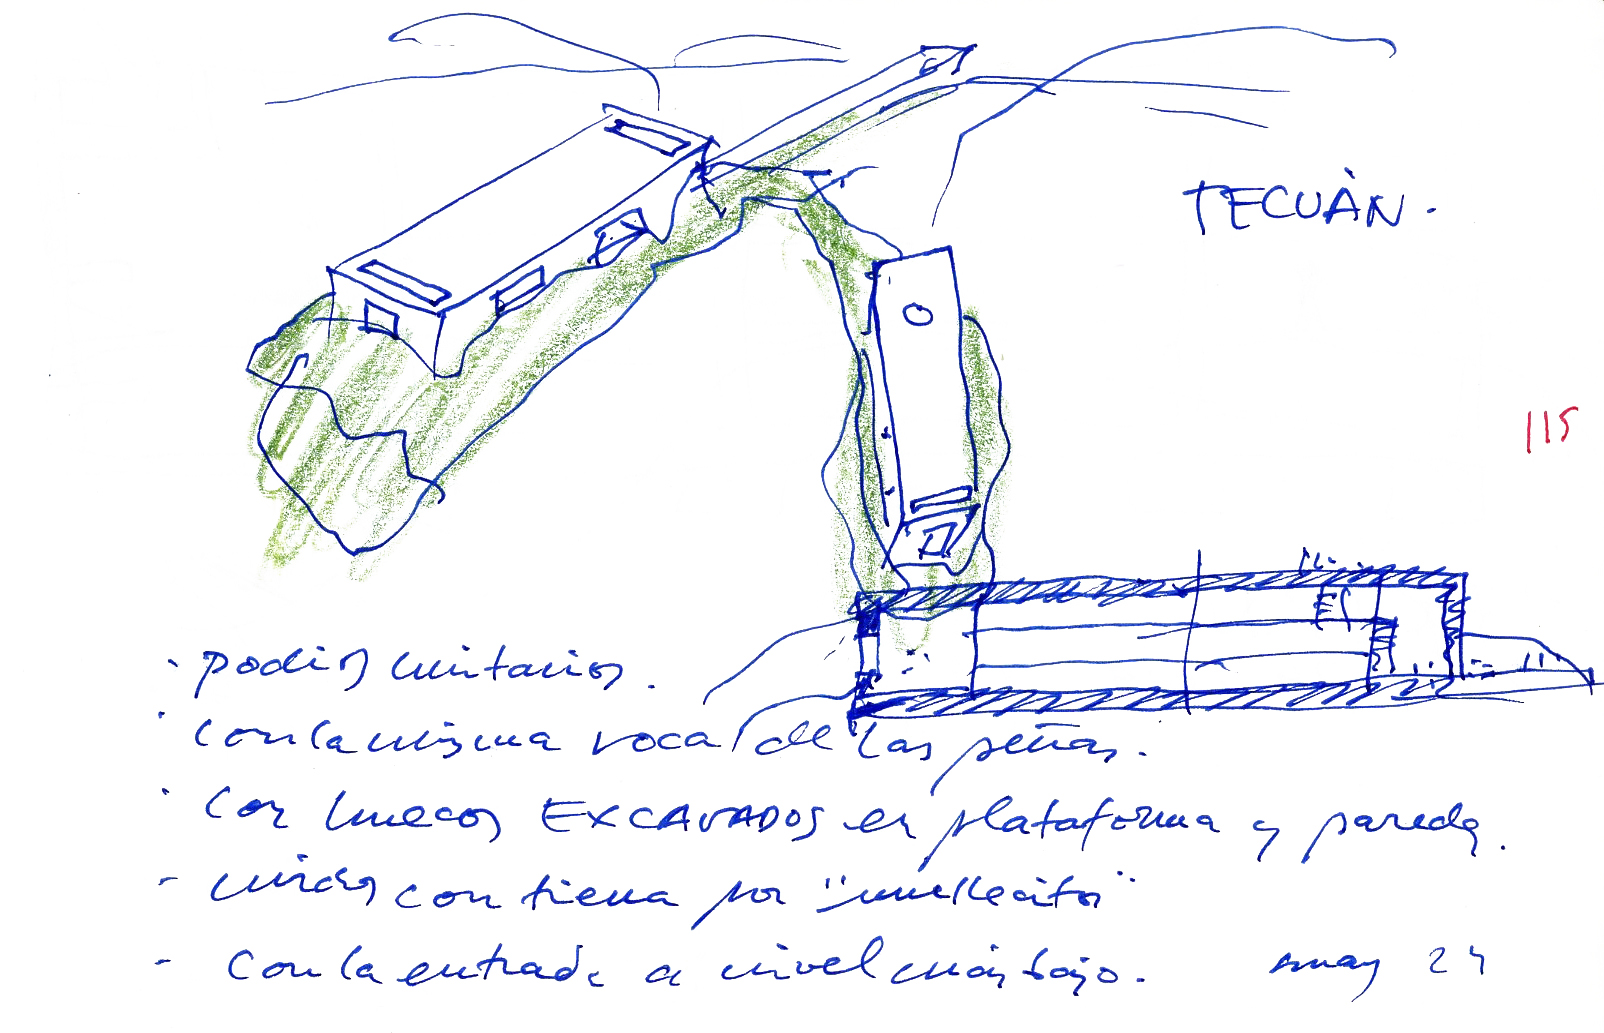 TECUÀN.
115
· podios unitarios.
· con la misma roca de las peñas.
· con huecos EXCAVADOS en plataforma y paredes.
- unidos con tierra por "muellecitos"
- con la entrada a nivel más bajo. may 24